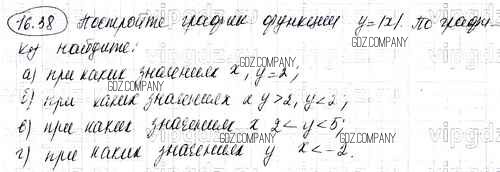 16.38 Постройте график функции y=|x|. По графи-
ку найдите:
а) при каких значениях x, y=2;
б) при каких значениях x y>2, y<2;
в) при каких значениях x 2<y<5;
г) при каких значениях y x<-2.
GDZ.COMPANY
GDZ.COMPANY
GDZ.COMPANY
GDZ.COMPANY
GDZ.COMPANY